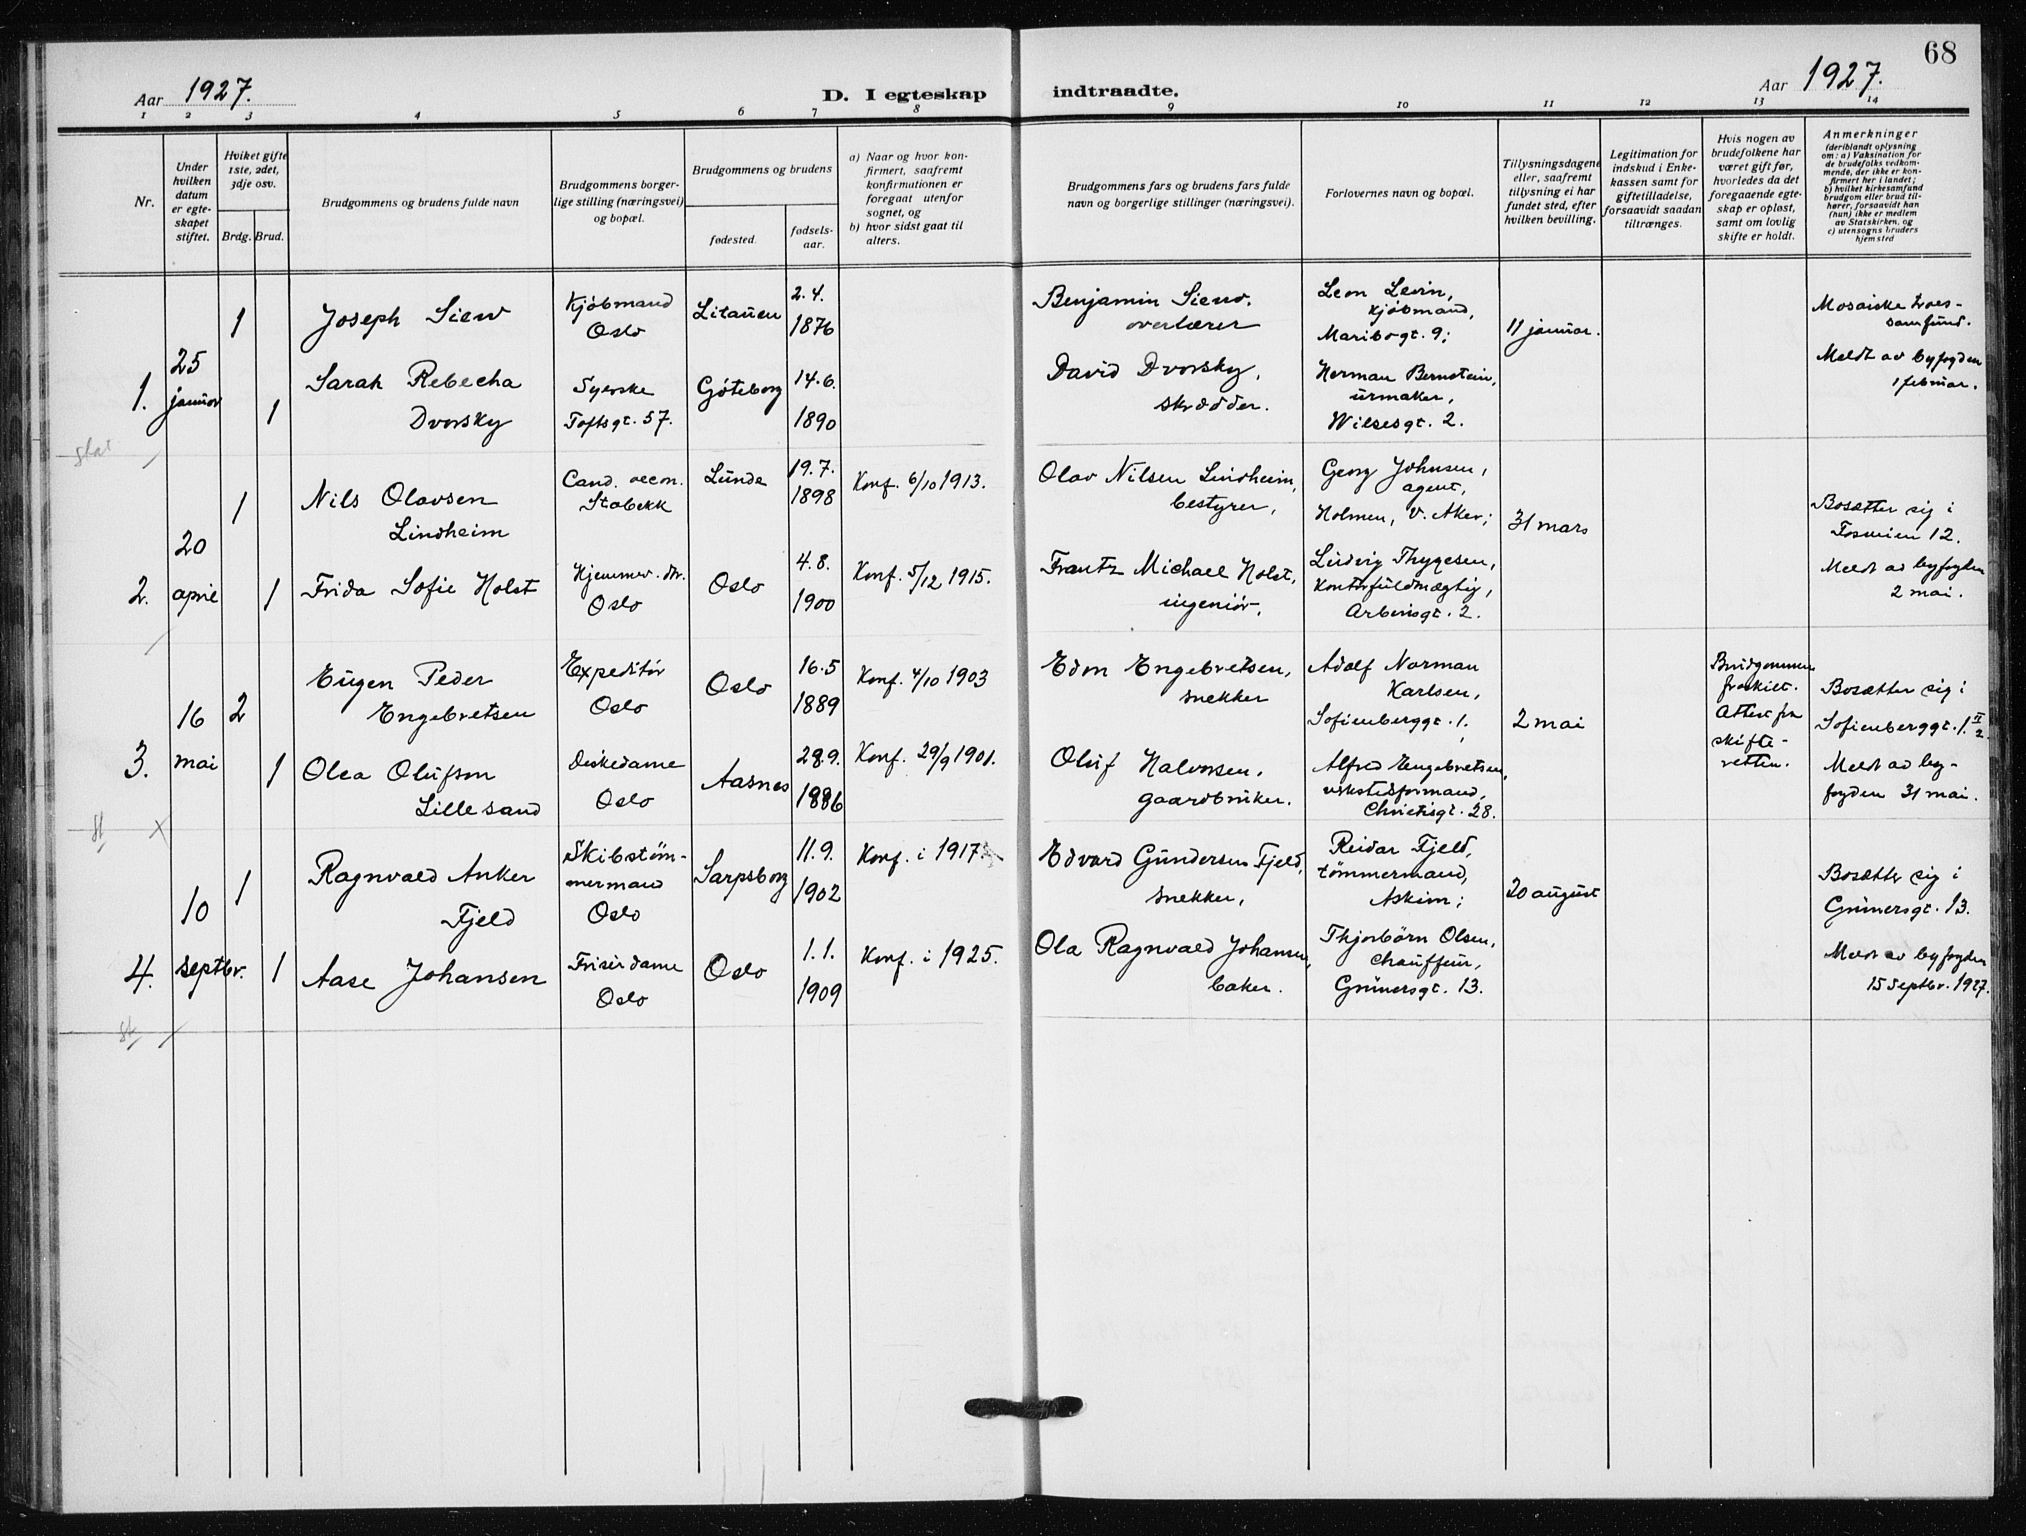 68
Aar 1927.
D. I egteskap indtraadte.
Aar 1927.
1 2 3 4 5 6 7 8 9 10 11 12 13 14
Nr.
Under
hvilken
datum
er egte-
skapet
stiftet.
Hviket gifte
1ste, 2det,
3dje osv.
Brdg. Brud.
Brudgommens og brudens fulde navn
Brudgommens borger-
lige stilling (næringsvei)
og bopæl.
Brudgommens og brudens
fødested.
fødsels-
aar.
a) Naar og hvor kon-
firmert, saafremt
konfirmationen er
foregaat utenfor
sognet, og
b) hvor sidst gaat til
alters.
Brudgommens fars og brudens fars fulde
navn og borgerlige stillinger (næringsvei).
Forlovernes navn og bopæl.
Tillysningsdagene
eller, saafremt
tillysning ei har
fundet sted, efter
hvilken bevilling.
Legitimation for
indskud i Enke-
kassen samt for
giftetilladelse,
forsaavidt saadan
tiltrænges.
Hvis nogen av
brudefolkene har
været gift før,
hvorledes da det
foregaaende egte-
skap er opløst,
samt om lovlig
skifte er holdt.
Anmerkninger
(deriblandt oplysning
om: a) Vaksination for
de brudefolks vedkom-
mende, der ikke er kon-
firmert her i landet;
b) hvilket kirkesamfund
brudgom eller brud til-
hører, forsaavidt han
(hun) ikke er medlem
av Statskirken, og
c) utensogns bruders
hjemsted
1.
25
januar
1
Joseph Siew
Kjøbmand
Oslo
Litauen
2.4.
1876
Benjamin Siew.
overlærer
Leon Levin,
kjøbmand,
Maribogt. 9;
11 januar.
Mosaiske troes-
samfund.
1
Sarah Rebecha
Dvorsky
Syerske
Toftsgt. 57.
Göteborg
14.6.
1890
David Dvorsky,
skrædder.
Herman Bernstein,
urmaker,
Wilsesgt. 2.
Meldt av byfogden
1 februar.
2.
20
april
1
Nils Olavsen
Lindheim
Cand. oecon.
Stabekk
Lunde
19.7.
1898
Konf. 6/10 1913.
Olav Nilsen Lindheim,
bestyrer,
Georg Johnsen,
agent,
Holmen, V. Aker;
31 mars
Bosætter sig i
12.
1
Frida Sofie Holst
Hjemmev. dtr.
Oslo
Oslo
4.8.
1900
Konf. 5/12 1915.
Frantz Michael Holst,
ingeniör.
Ludvig Thygesen,
kontorfuldmægtig,
Arbinsgt. 2.
Meldt av byfogden
2 mai.
3.
16
mai
2
Eugen Peder
Engebretsen
Expeditör
Oslo
Oslo
16.5
1889
Konf. 4/10 1903
Edvn Engebretsen,
snekker
Adolf Norman
Karlsen,
Sofienberggt. 1;
2 mai
Brudgommen
fraskilt.
Attest fra
skifte-
retten.
Bosætter sig i
Sofienberggt. 1.
1
Olea Olufson
Lillesand
Diskedame
Oslo
Aasnes
28.9.
1886
Konf. 29/9 1901.
Oluf Halvorsen,
gaardbruker.
Alfred Engebretsen,
verkstedsformand,
Christiesgt. 28.
Meldt av by-
fogden 31 mai.
4.
10
septbr.
1
Ragnvald Anker
Fjeld
Skibstøm-
mermand
Oslo
Sarpsborg
11.9.
1902
Konf. i 1917.
Edvard Gundersen Fjeld,
snekker,
Reidar Fjeld,
tömmermand,
Askim;
20 august
Bosætter sig i
Grünersgt. 13.
1
Aase Johansen
Friserdame
Oslo
Oslo
1.1.
1909
Konf. i 1925.
Ola Ragnvald Johansen,
baker.
Thjorbörn Olsen,
Chauffeur,
Grünersgt. 13.
Meldt av byfogden
15 Septbr. 1927.